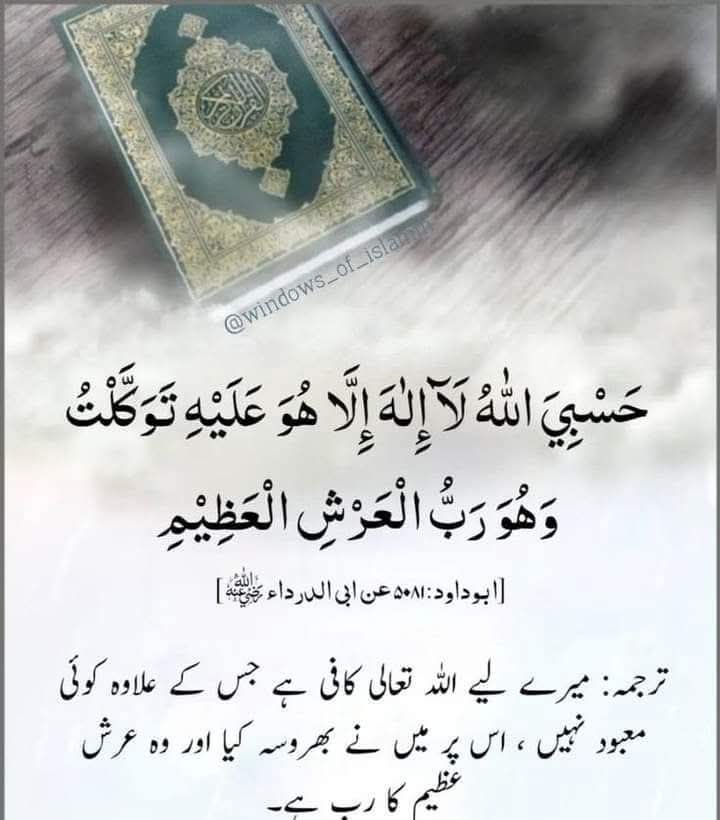 @windows_of_islamm
حَسْبِيَ اللّٰهُ لَآ إِلٰهَ إِلَّا هُوَ عَلَيْهِ تَوَكَّلْتُ
وَهُوَ رَبُّ الْعَرْشِ الْعَظِيْمِ
[ابوداود:۵۰۸۱ عن ابی الدرداء رضی اللہ عنہ]
ترجمہ: میرے لیے اللہ تعالی کافی ہے جس کے علاوہ کوئی
معبود نہیں ، اس پر میں نے بھروسہ کیا اور وہ عرش
عظیم کا رب ہے۔